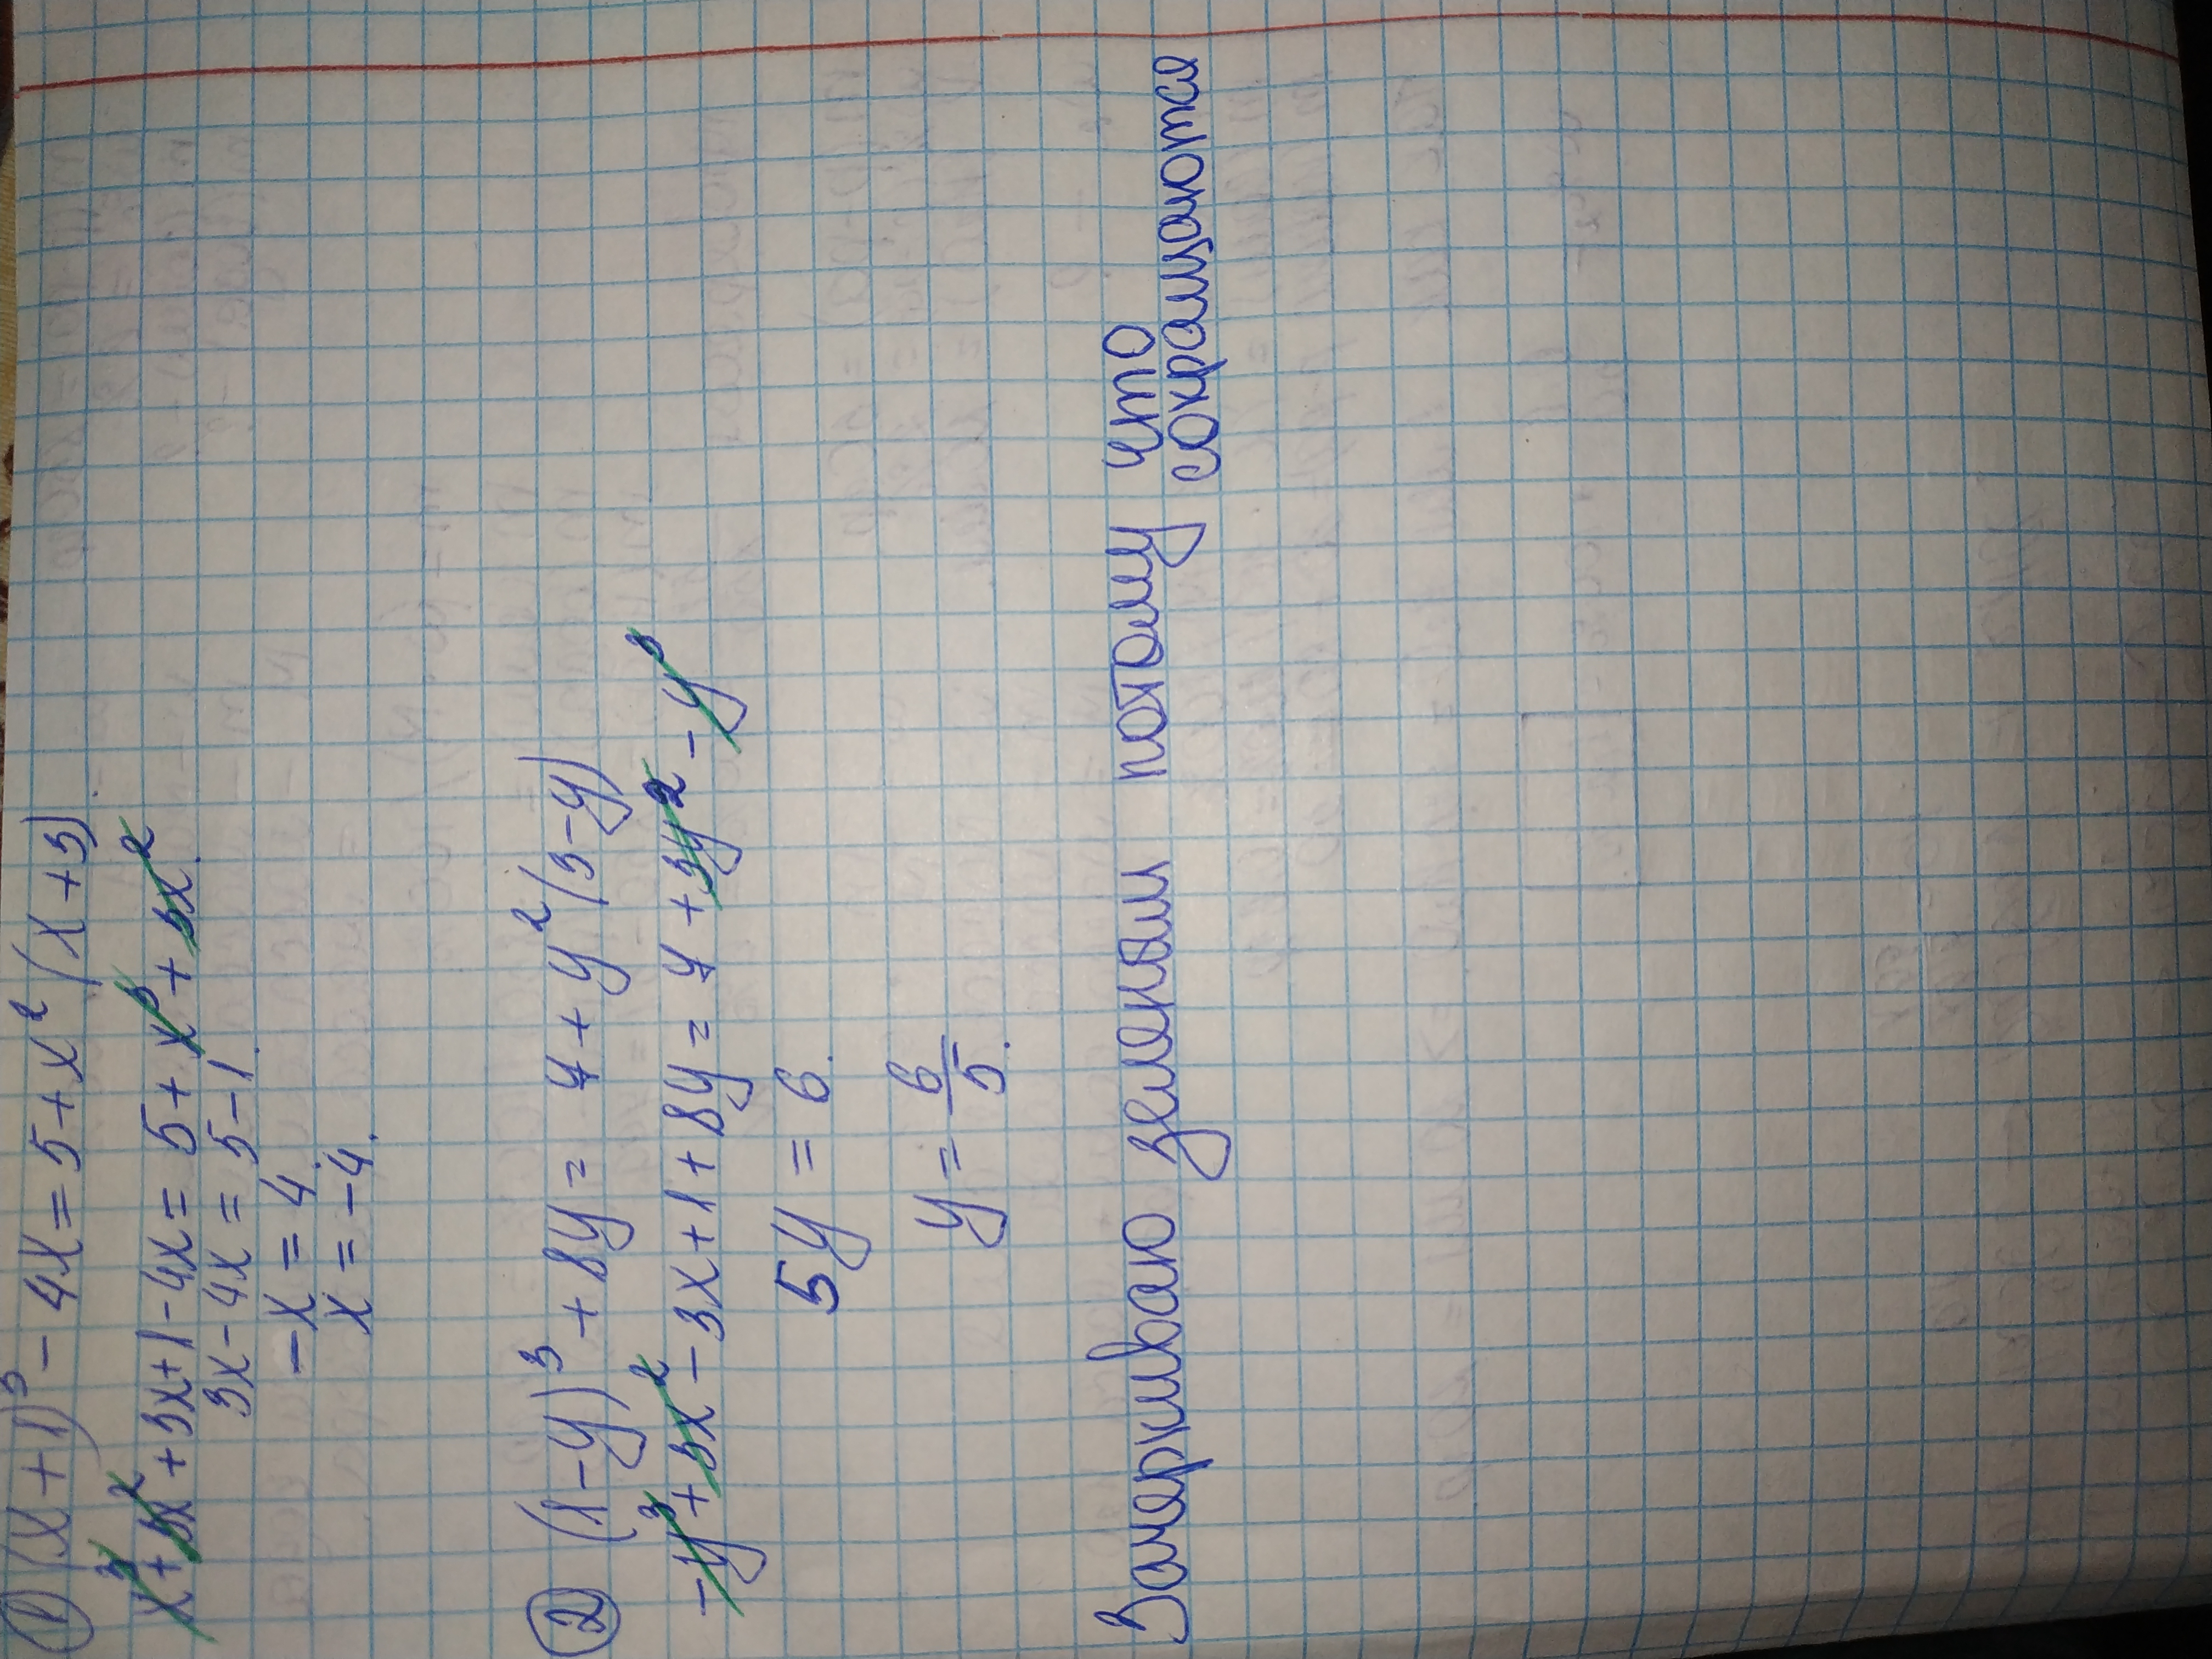 ① (x+1)³ - 4x = 5+x² (x+3)
x³ + 3x² + 3x+1 - 4x = 5 + x³ + 3x².
3x - 4x = 5 - 1.
-x = 4.
x = -4.
② (1-y)³ + 8y = 7 + y² (3-y)
-y³ + 3x² - 3x + 1 + 8y = 7 + 3y² - y³
5y = 6.
y = 6/5.
Зачеркиваю зеленым потому что
сокращаются